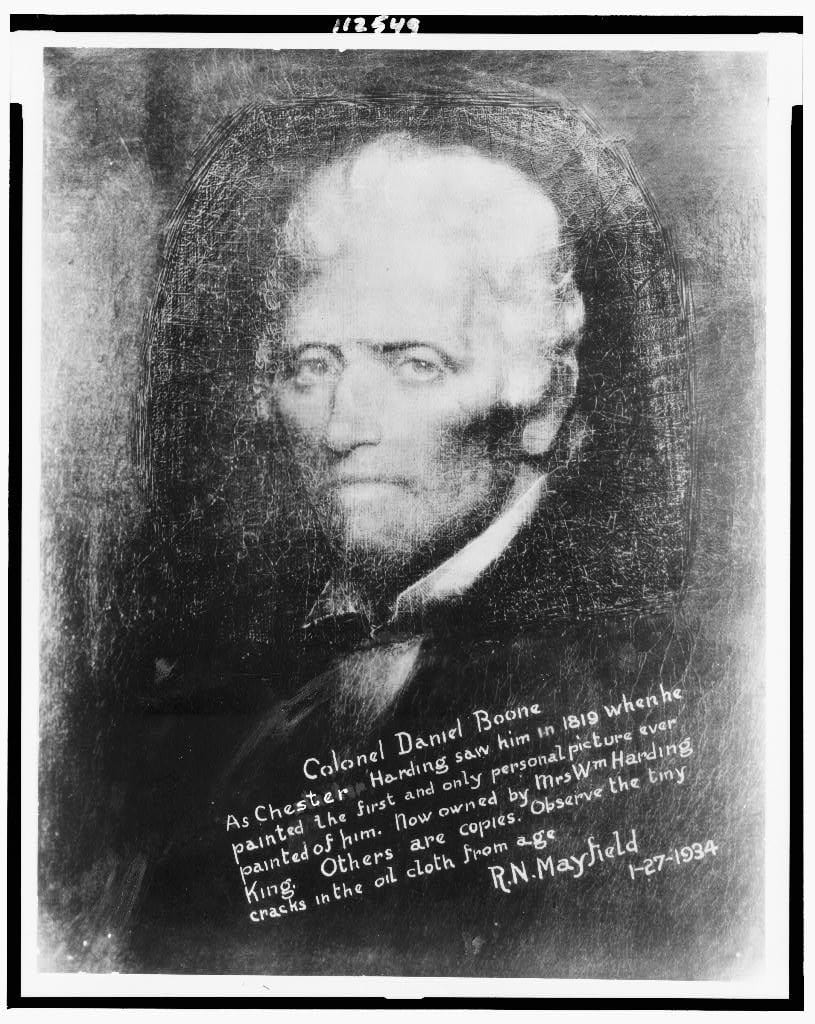 112549
Colonel Daniel Boone
As Chester Harding saw him in 1819 when he
painted the first and only personal picture ever
painted of him. Now owned by Mrs Wm Harding
King. Others are copies. Observe the tiny
cracks in the oil cloth from age
R.N. Mayfield
1-27-1934